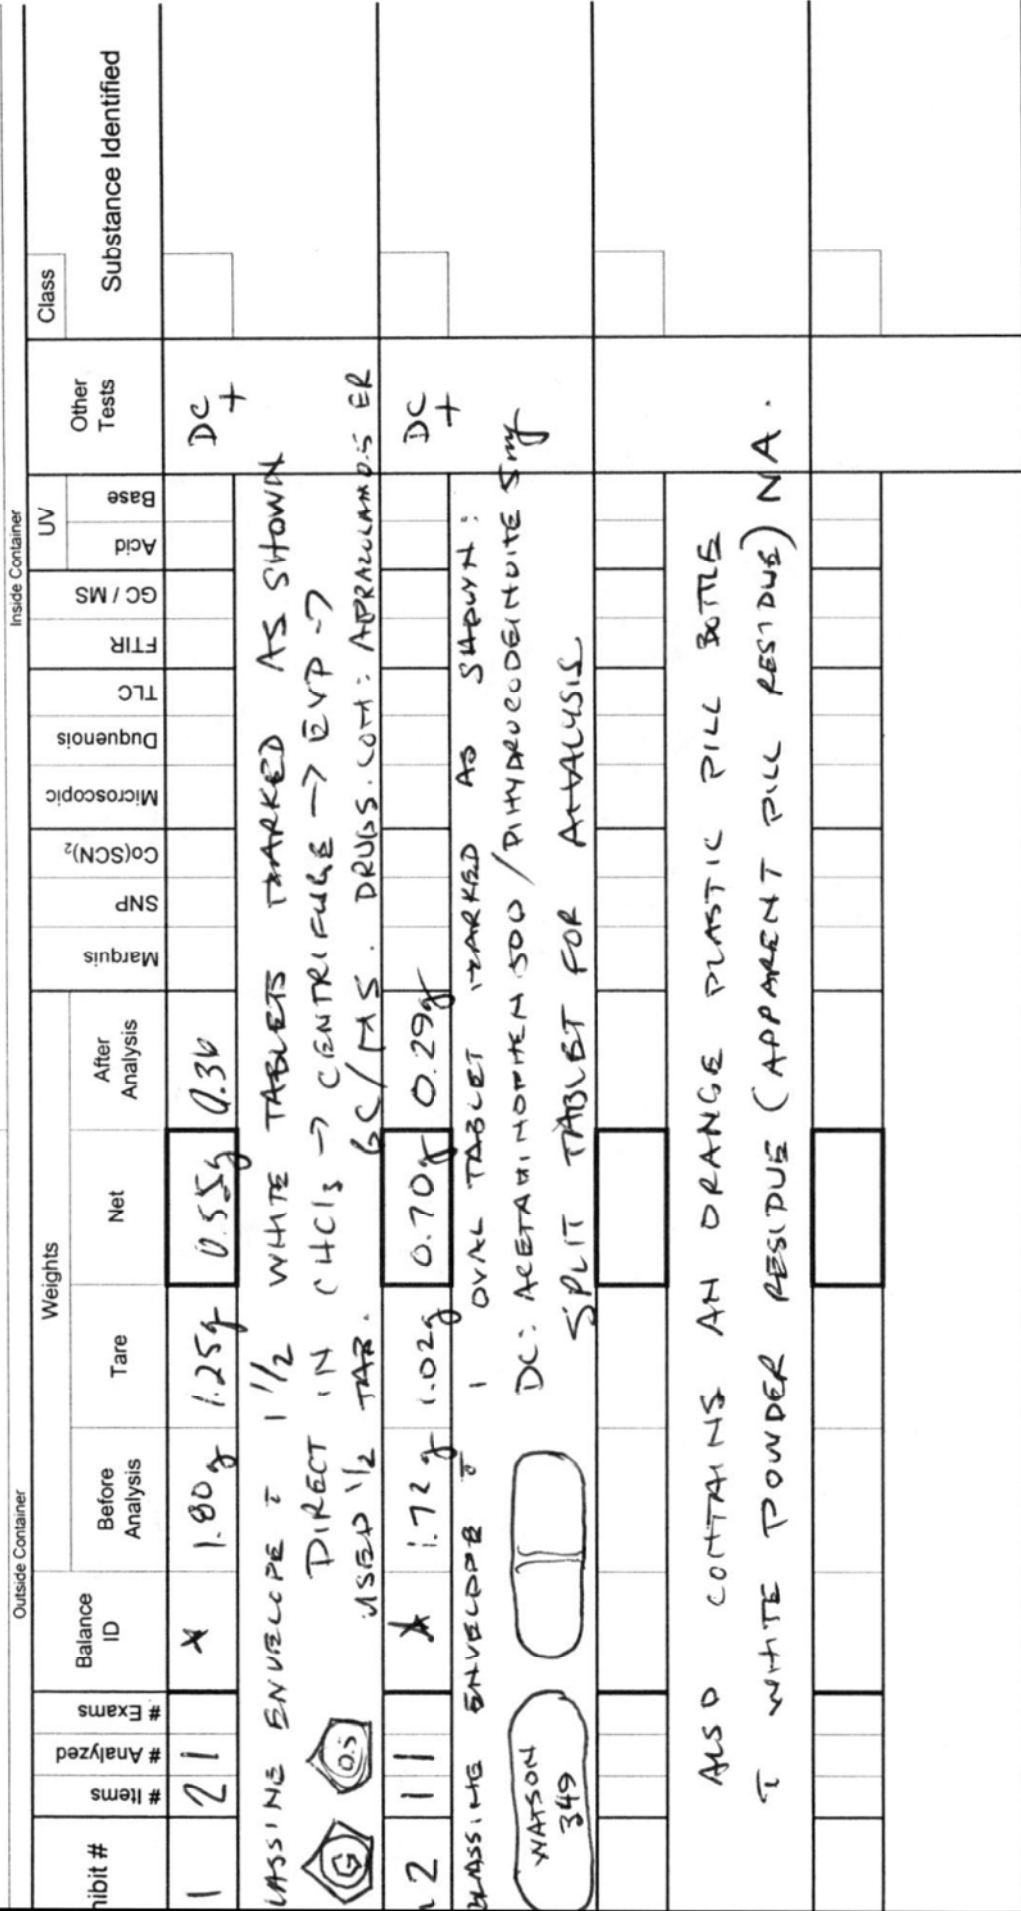 Outside Container Inside Container
hibit # # Items # Analyzed # Exams Balance ID Weights Before Analysis Tare Net After Analysis Marquis SNP Co(SCN)2 Microscopic Duquenois TLC FTIR GC / MS UV Acid Base Other Tests Class Substance Identified
1 2 1 1.80g 1.25g 0.55g DC +
ENVELOPE 1 1/2 WHITE TABLETS MARKED AS SHOWN
G 0.5 DIRECT IN CHCl3 → CENTRIFUGE → EVP →
USED 1/2 TAB. GC/MS. DRUGS.COM: 0.5 ER
2 1 1 1.72g 1.02g 0.70g 0.29g DC +
ENVELOPE 1 OVAL TABLET MARKED AS SHOWN:
WATSON 349 DC: ACETAMINOPHEN 500 / 5mg
SPLIT TABLET FOR ANALYSIS
ALSO CONTAINS AN ORANGE PLASTIC PILL BOTTLE
WHITE POWDER RESIDUE (APPARENT PILL RESIDUE) NA.